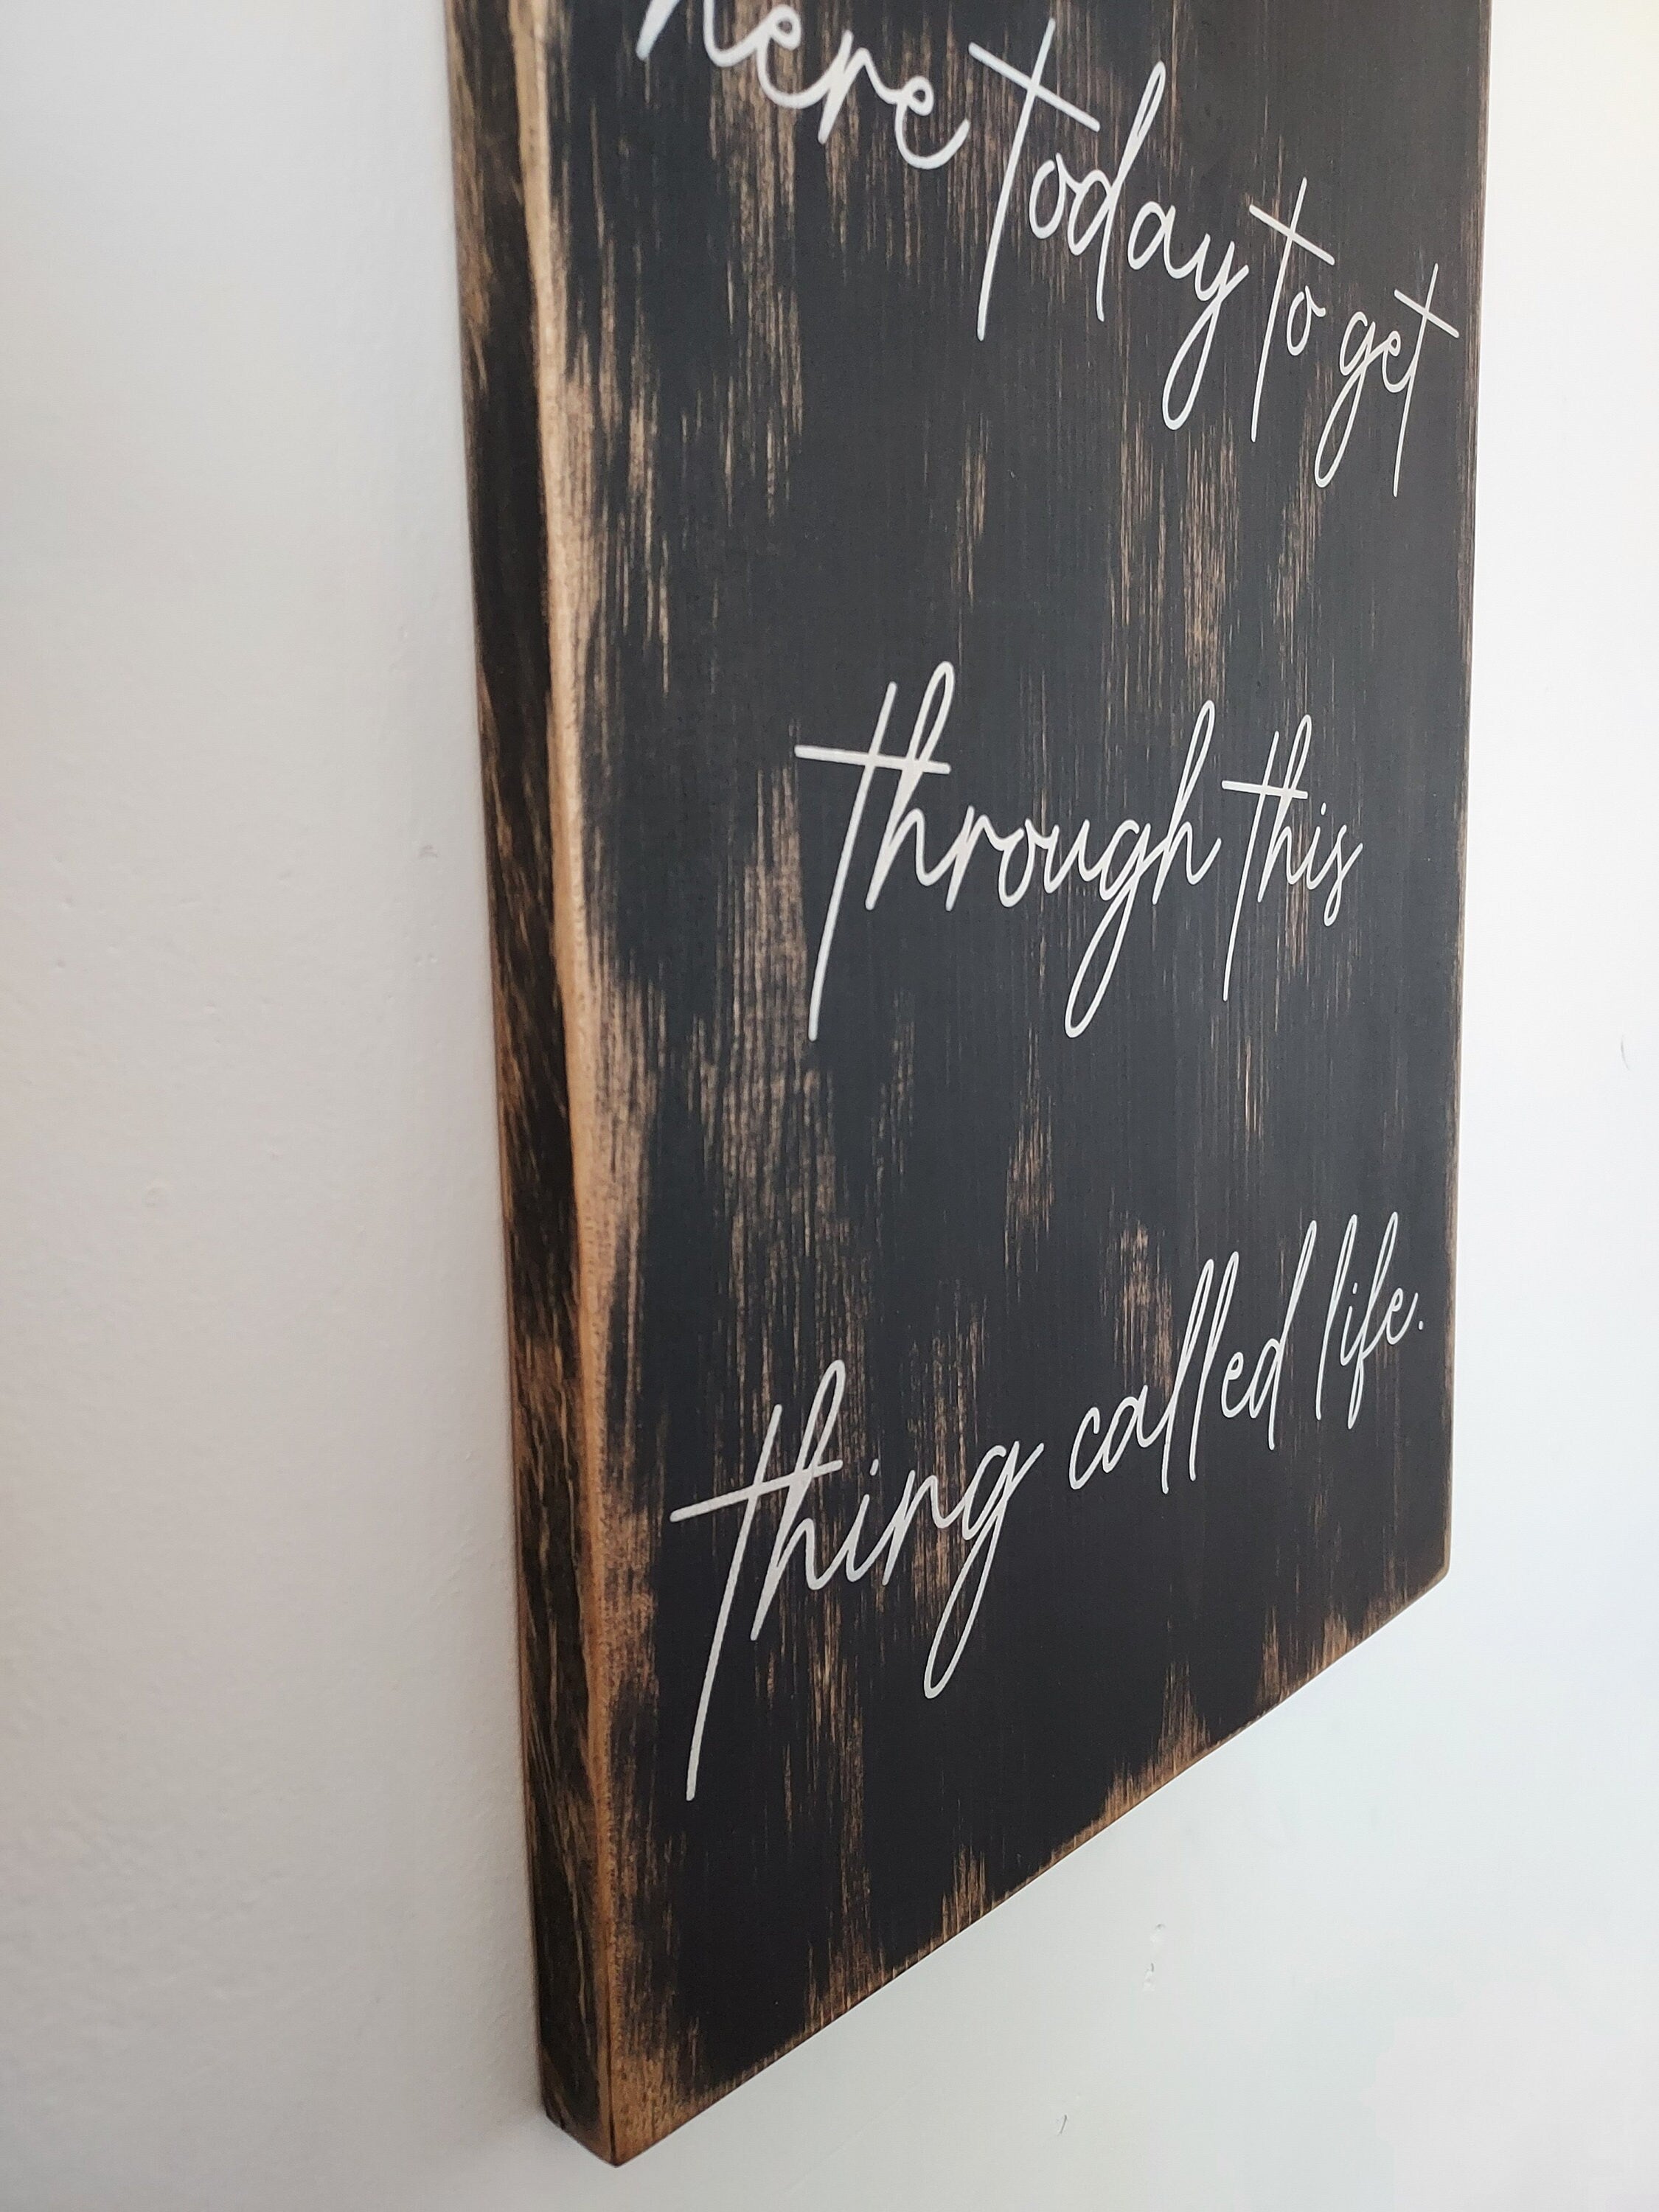 here today to get
through this
thing called life.